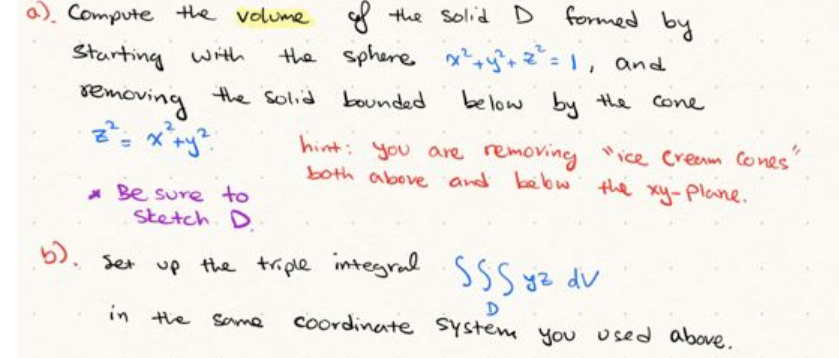 a). Compute the volume of the solid D formed by
starting with the sphere x²+y²+z²=1, and
removing the solid bounded below by the cone
z²=x²+y².
hint: you are removing "ice cream cones"
both above and below the xy-plane.
* Be sure to
sketch D.
b). Set up the triple integral ∫∫∫ yz dV
D
in the same coordinate system you used above.